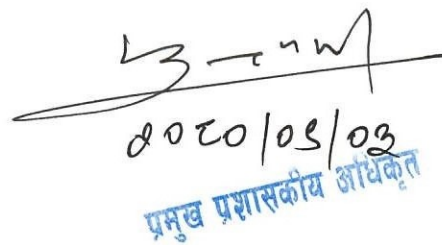 २०८०/०९/०३
प्रमुख प्रशासकीय अधिकृत